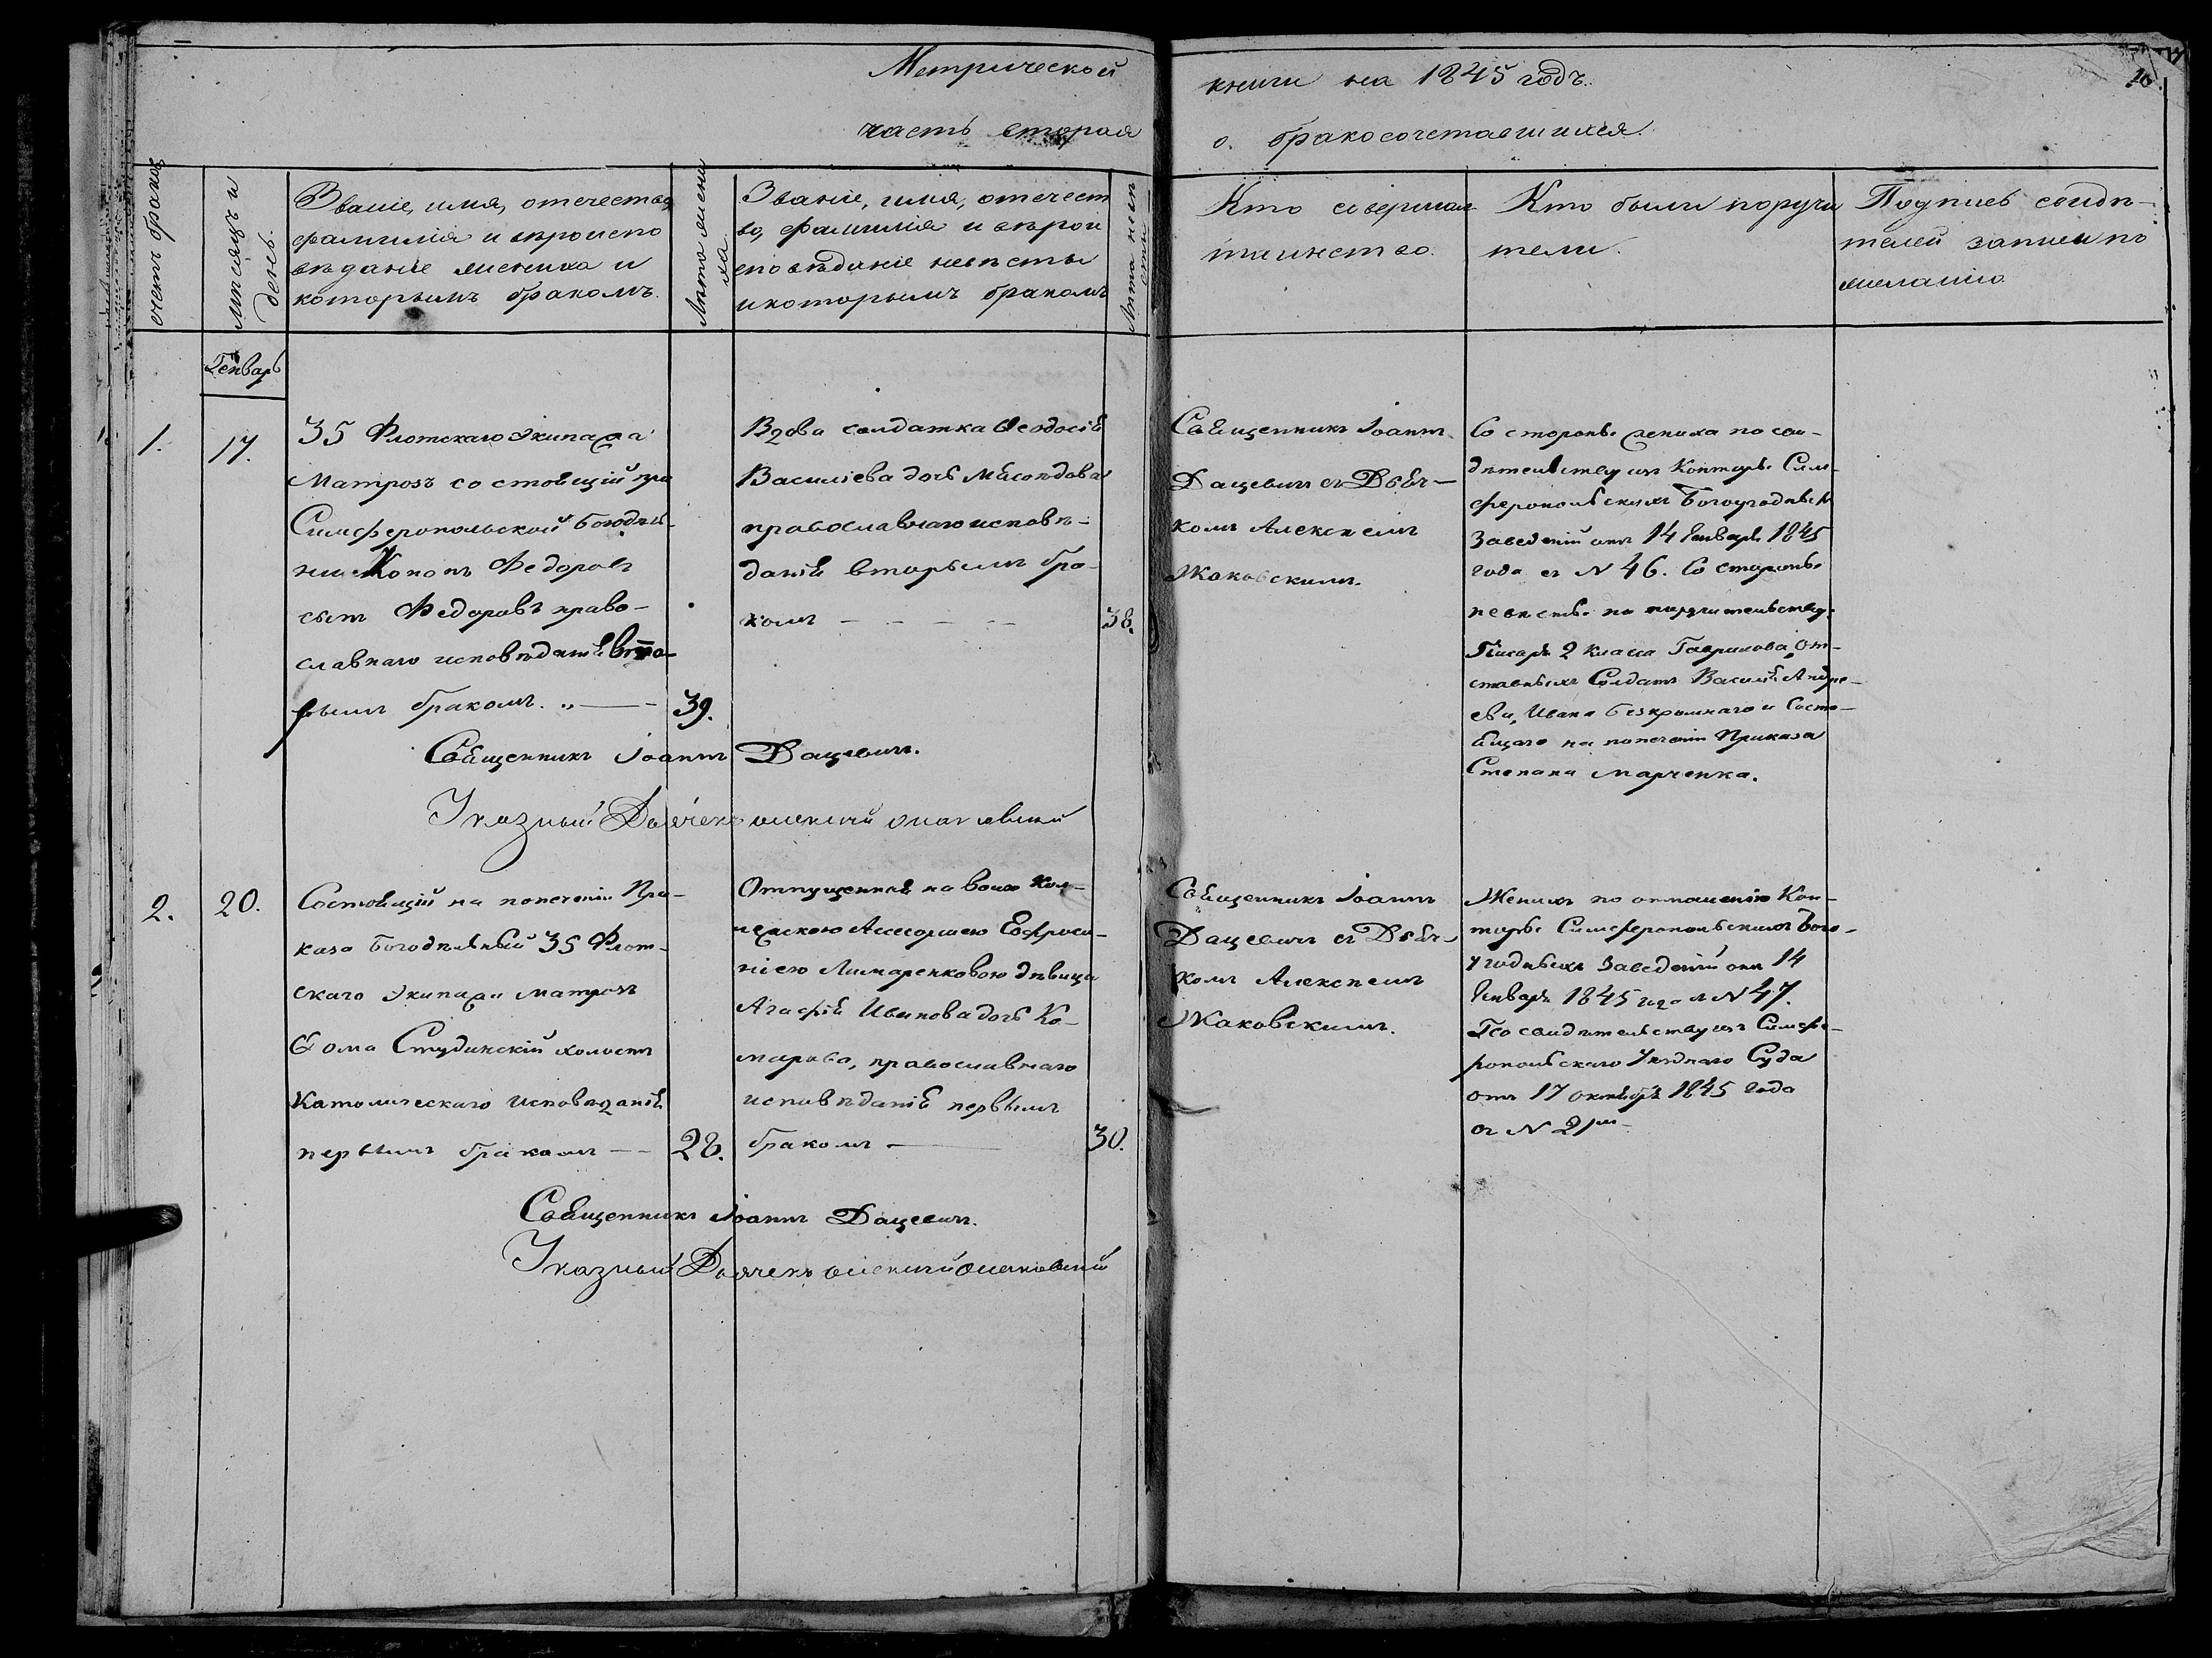 Метрической
часть вторая
книги на 1845 годъ.
о бракосочетавшихся.
10.
счетъ браковъ
Мѣсяцъ и
день.
Званіе, имя, отечество,
фамилія и вѣроиспо
вѣданіе жениха и
которымъ бракомъ.
Лѣта жени
ха.
Званіе, имя, отечест
во, фамилія и вѣрои
сповѣданіе невѣсты
и которымъ бракомъ
Лѣта невѣ
сты
Кто совершал
таинство.
Кто были поручи
тели.
Подпись свидѣ-
телей записи по
желанію
Генварь
1.
17.
35 Флотскаго Экипажа
Матрозъ состоящій при
Симферопольской богодѣль-
ни Кононъ Федоровъ
сынъ Федоровъ право-
славнаго исповѣданія вто-
рымъ бракомъ. „ —
39.
Вдова солдатка Ѳеодосія
Василіева дочь
православнаго исповѣ-
данія вторымъ бра-
комъ - - - -
38.
Священникъ Іоаннъ
Дацевичъ съ Дьяч-
комъ Алексѣемъ
Жаковскимъ.
Со стороны жениха по сви-
дѣтельству изъ Конторы Сим-
феропольскихъ Богоугодныхъ
Заведеній отъ 14 Генваря 1845
года съ N 46. Со стороны
невѣсты по поручительству
Писаря 2 класса Гаврилова, От-
ставныхъ Солдатъ Василія Андре-
ева, Ивана Безкромнаго и Состо-
ящаго на попеченіи Приказа
Степана Марченка.
Священникъ Іоаннъ Дацевичъ.
Указный Дьячекъ
2.
20.
Состоящій на попеченіи При-
каза Богодѣльный 35 Флот-
скаго Экипажа Матрозъ
Ѳома Студинскій холостъ
Католическаго исповѣданія
первымъ бракомъ - -
28.
Отпущенная на волю Кол-
лежскою Ассесоршею Евфроси-
ніею Лимаренковою дѣвица
Агафія Иванова дочь Ко-
марова, православнаго
исповѣданія первымъ
бракомъ —
30.
Священникъ Іоаннъ
Дацевичъ съ Дьяч-
комъ Алексѣемъ
Жаковскимъ.
Женихъ по отношенію Кон-
торы Симферопольскихъ Бого-
угодныхъ Заведеній отъ 14
Генваря 1845 года съ N 47.
По свидѣтельству изъ Симфе-
ропольскаго Уѣзднаго Суда
отъ 17 октября 1845 года
съ N
Священникъ Іоаннъ Дацевичъ.
Указный Дьячекъ